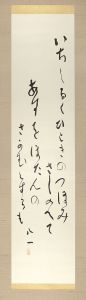 いちしろくひときのつぼみ
さしのべて
あすをぼたんの
さかむとするも
八一